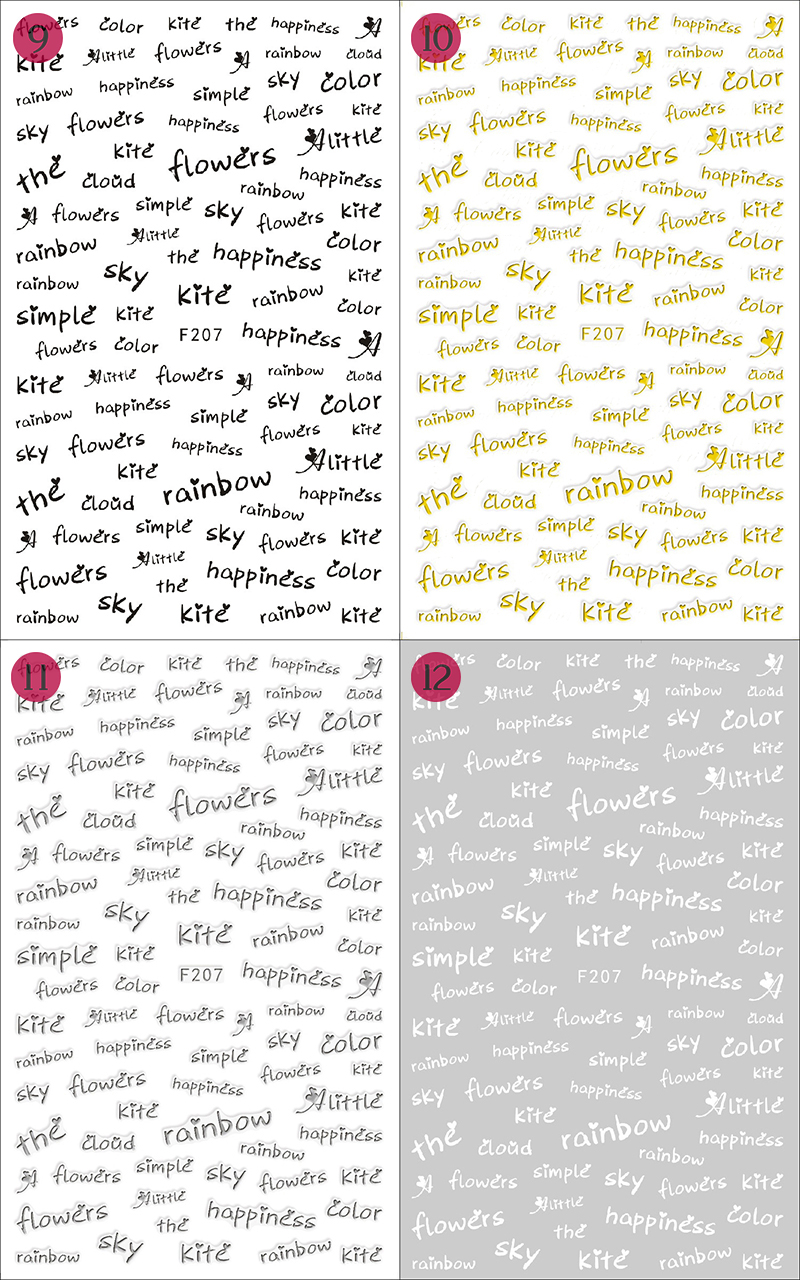 9
flowers color kite the happiness A
kite Alittle flowers A rainbow cloud
rainbow happiness simple sky color
sky flowers happiness flowers kite
the kite flowers Alittle
cloud rainbow happiness
A flowers simple sky flowers kite
rainbow Alittle the happiness color
rainbow sky kite rainbow kite
simple kite F207 happiness color A
flowers color
kite Alittle flowers A rainbow cloud
rainbow happiness simple sky color
sky flowers happiness flowers kite
the kite rainbow Alittle
cloud rainbow happiness
A flowers simple sky flowers kite
flowers Alittle the happiness color
rainbow sky kite rainbow kite
10
flowers color kite the happiness A
kite Alittle flowers A rainbow cloud
rainbow happiness simple sky color
sky flowers happiness flowers kite
the kite flowers Alittle
cloud rainbow happiness
A flowers simple sky flowers kite
rainbow Alittle the happiness color
rainbow sky kite rainbow kite
simple kite F207 happiness color A
flowers color
kite Alittle flowers A rainbow cloud
rainbow happiness simple sky color
sky flowers happiness flowers kite
the kite rainbow Alittle
cloud rainbow happiness
A flowers simple sky flowers kite
flowers Alittle the happiness color
rainbow sky kite rainbow kite
11
flowers color kite the happiness A
kite Alittle flowers A rainbow cloud
rainbow happiness simple sky color
sky flowers happiness flowers kite
the kite flowers Alittle
cloud rainbow happiness
A flowers simple sky flowers kite
rainbow Alittle the happiness color
rainbow sky kite rainbow kite
simple kite F207 happiness color A
flowers color
kite Alittle flowers A rainbow cloud
rainbow happiness simple sky color
sky flowers happiness flowers kite
the kite rainbow Alittle
cloud rainbow happiness
A flowers simple sky flowers kite
flowers Alittle the happiness color
rainbow sky kite rainbow kite
12
flowers color kite the happiness A
kite Alittle flowers A rainbow cloud
rainbow happiness simple sky color
sky flowers happiness flowers kite
the kite flowers Alittle
cloud rainbow happiness
A flowers simple sky flowers kite
rainbow Alittle the happiness color
rainbow sky kite rainbow kite
simple kite F207 happiness color A
flowers color
kite Alittle flowers A rainbow cloud
rainbow happiness simple sky color
sky flowers happiness flowers kite
the kite rainbow Alittle
cloud rainbow happiness
A flowers simple sky flowers kite
flowers Alittle the happiness color
rainbow sky kite rainbow kite